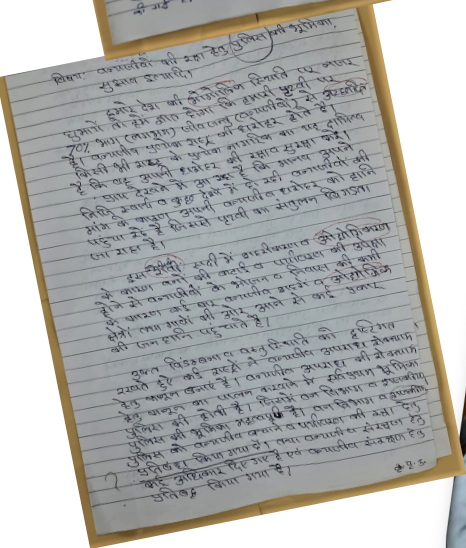 विषय: वन्यजीवों की रक्षा हेतु पुलिस की भूमिका
सुझाव इत्यादि।
हमारे देश की भौगोलिक स्थिति पर नजर
घुमायें तो हमें ज्ञात होगा कि हमारी पृथ्वी पर
70% भाग (लगभग) जीव जन्तु (वन्यजीवों) से आच्छादित
है। वन्यजीव प्रत्येक राष्ट्र की धरोहर होते हैं।
किसी भी राष्ट्र के प्रत्येक नागरिक का यह दायित्व
है कि वह अपनी धरोहर की रक्षा व सुरक्षा करें।
प्रायः देखने में आ रहा है कि मानव अपने
निहित स्वार्थ व कुछ देशों में हो रही वन्यजीवों की
मांग के कारण अपनी वन्यजीव धरोहर को हानि
पहुंचा रहे हैं जिससे पृथ्वी का संतुलन बिगड़ता
जा रहा है।
इस सदी में शहरीकरण व औद्योगिकरण
के कारण वनों की कटाई व पर्यावरण की उपेक्षा
होने से वन्यजीवों के भोजन व निवास की कमी
के कारण कई बार वन्यजीव शहरों व औद्योगिक
क्षेत्रों तथा गावों की ओर आने से कई प्रकार
की जन हानि पहुंचाते हैं।
उक्त विडंबना व वस्तु स्थिति को दृष्टिगत
रखते हुए कई राष्ट्रों ने वन्यजीव अपराध रोकथाम
हेतु कानून बनाये हैं। वन्यजीव अपराधों की रोकथाम
हेतु कानून का पालन करवाने में सर्वप्रथम भूमिका
पुलिस की होती है। जिसमें वन विभाग व
पुलिस की भूमिका महत्वपूर्ण है। वन विभाग व
पुलिस को वन्यजीव बचाने व पर्यावरण की रक्षा हेतु
प्रतिबद्ध किया गया है। तथा वन्यजीव संरक्षण हेतु
कई अधिकार दिए गए हैं एवं वन्यजीव संरक्षण हेतु
प्रतिबद्ध किया गया है।